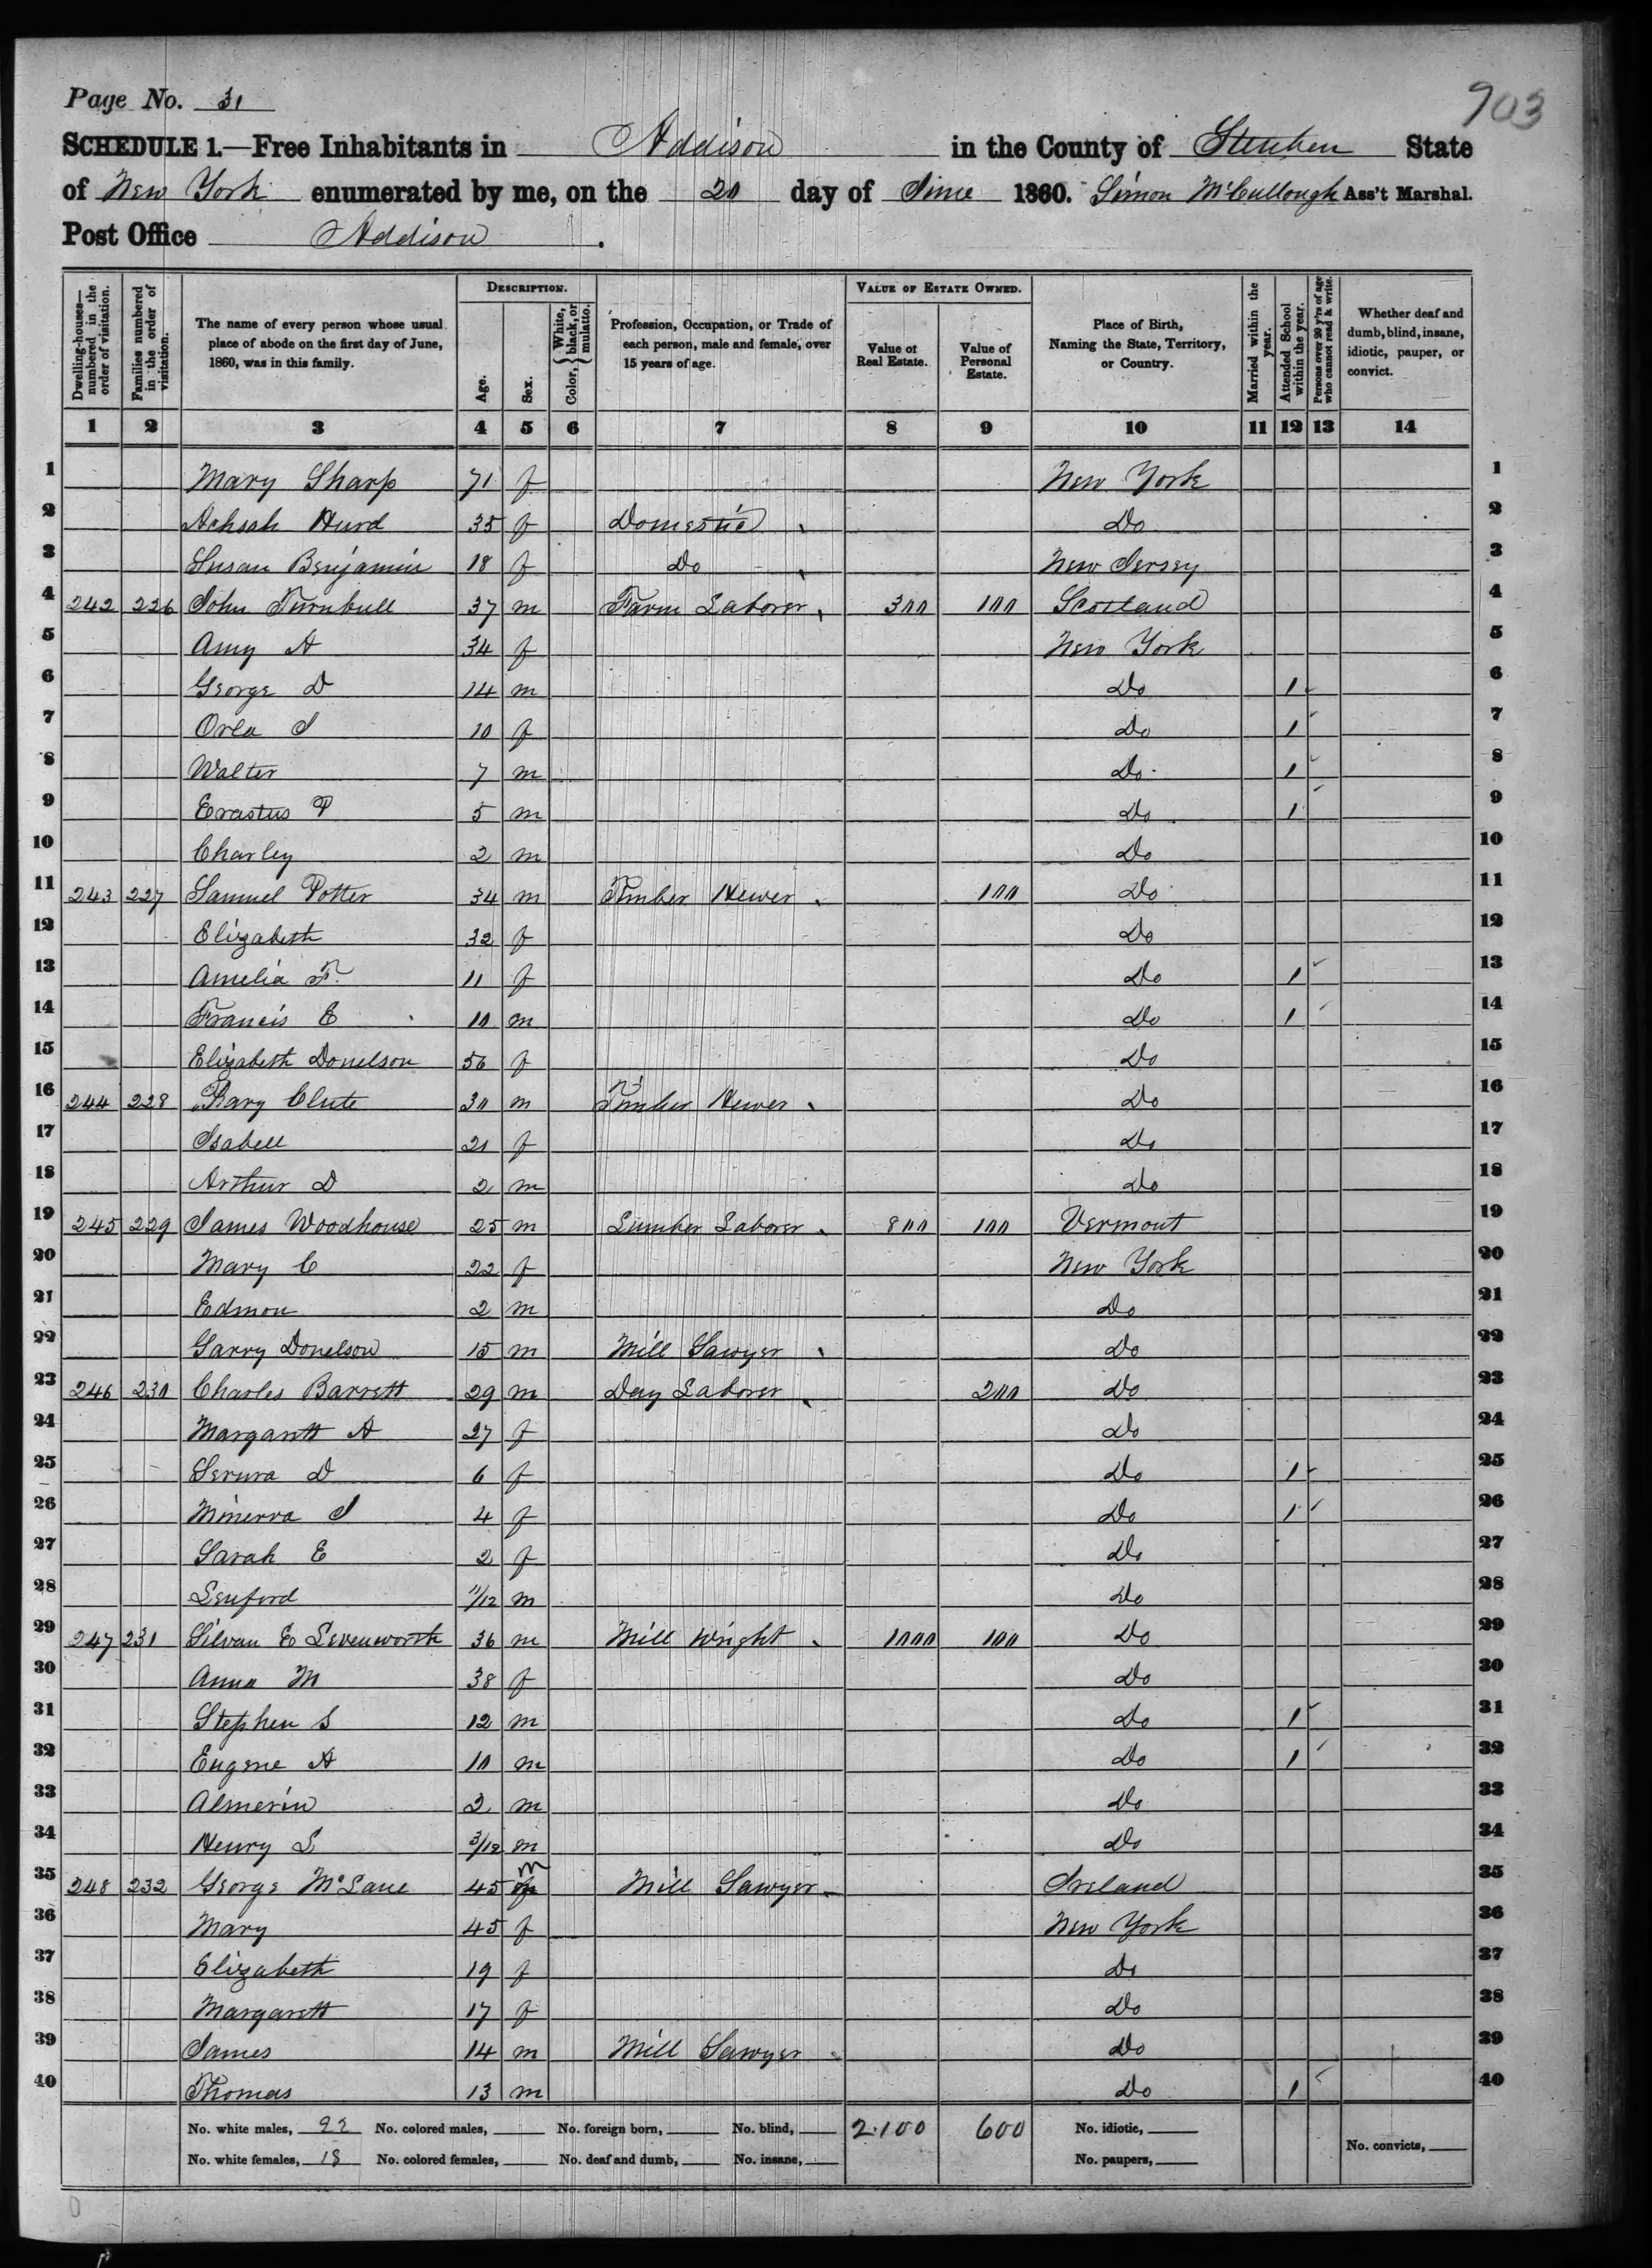 Page No. 31
903
SCHEDULE 1.—Free Inhabitants in Addison in the County of Steuben State
of New York enumerated by me, on the 20 day of June 1860. Simon McCullough Ass't Marshal.
Post Office Addison.
Dwelling-houses—numbered in the order of visitation.
Families numbered in the order of visitation.
The name of every person whose usual place of abode on the first day of June, 1860, was in this family.
DESCRIPTION.
Age.
Sex.
Color, { White, black, or mulatto.
Profession, Occupation, or Trade of each person, male and female, over 15 years of age.
VALUE OF ESTATE OWNED.
Value of Real Estate.
Value of Personal Estate.
Place of Birth, Naming the State, Territory, or Country.
Married within the year.
Attended School within the year.
Persons over 20 y'rs of age who cannot read & write.
Whether deaf and dumb, blind, insane, idiotic, pauper, or convict.
1 2 3 4 5 6 7 8 9 10 11 12 13 14
1 Mary Sharp 71 f New York 1
2 Achsah Hurd 35 f Domestic Do 2
3 Susan Benjamin 18 f Do New Jersey 3
4 242 226 John Turnbull 37 m Farm Laborer 300 100 Scotland 4
5 Amy A 34 f New York 5
6 George D 14 m Do 1 6
7 Orla J 10 f Do 1 7
8 Walter 7 m Do 1 8
9 Erastus P 5 m Do 1 9
10 Charley 2 m Do 10
11 243 227 Samuel Potter 34 m Timber Hewer 100 Do 11
12 Elizabeth 32 f Do 12
13 Amelia F. 11 f Do 1 13
14 Francis E 10 m Do 1 14
15 Elizabeth Donelson 56 f Do 15
16 244 228 Clute 30 m Timber Hewer Do 16
17 Isabell 21 f Do 17
18 Arthur D 2 m Do 18
19 245 229 James Woodhouse 25 m Lumber Laborer 800 100 Vermont 19
20 Mary C 22 f New York 20
21 Edmon 2 m Do 21
22 Garry Donelson 15 m Mill Sawyer Do 22
23 246 230 Charles Barrett 29 m Day Laborer 200 Do 23
24 Margarett A 27 f Do 24
25 D 6 f Do 1 25
26 Minerva J 4 f Do 1 26
27 Sarah E 2 f Do 27
28 Lenford 11/12 m Do 28
29 247 231 Silvan E Levenworth 36 m Mill Wright 1000 100 Do 29
30 Anna M 38 f Do 30
31 Stephen S 12 m Do 1 31
32 Eugene A 10 m Do 1 32
33 Almerin 2 m Do 33
34 Henry L 3/12 m Do 34
35 248 232 George McLane 45 m Mill Sawyer Ireland 35
36 Mary 45 f New York 36
37 Elizabeth 19 f Do 37
38 Margarett 17 f Do 38
39 James 14 m Mill Sawyer Do 39
40 Thomas 13 m Do 1 40
No. white males, 22 No. colored males, No. foreign born, No. blind, 2.100 600 No. idiotic,
No. white females, 18 No. colored females, No. deaf and dumb, No. insane, No. paupers, No. convicts,